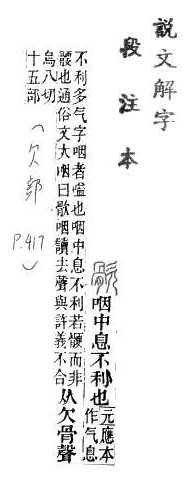 說文解字
段注本
歄咽中息不利也元應本
作气息
不利多气字咽者嗌也咽中息不利若骾而非
骾也通俗文大咽曰歄咽讀去聲與許義不合从欠骨聲
烏八切
十五部
(欠部 P.417)